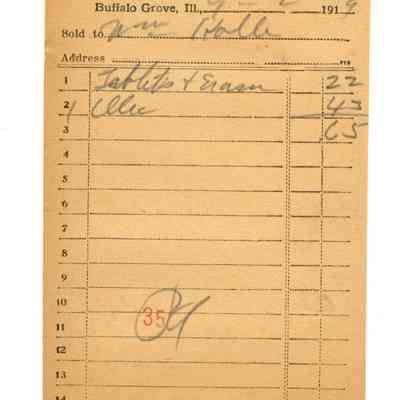 Buffalo Grove, Ill., 9-2 1919
Sold to Wm Holle
Address
1 Tablets + Eraser 22
2 43
3 .65
4
5
6
7
8
9
10
35
11
12
13
14